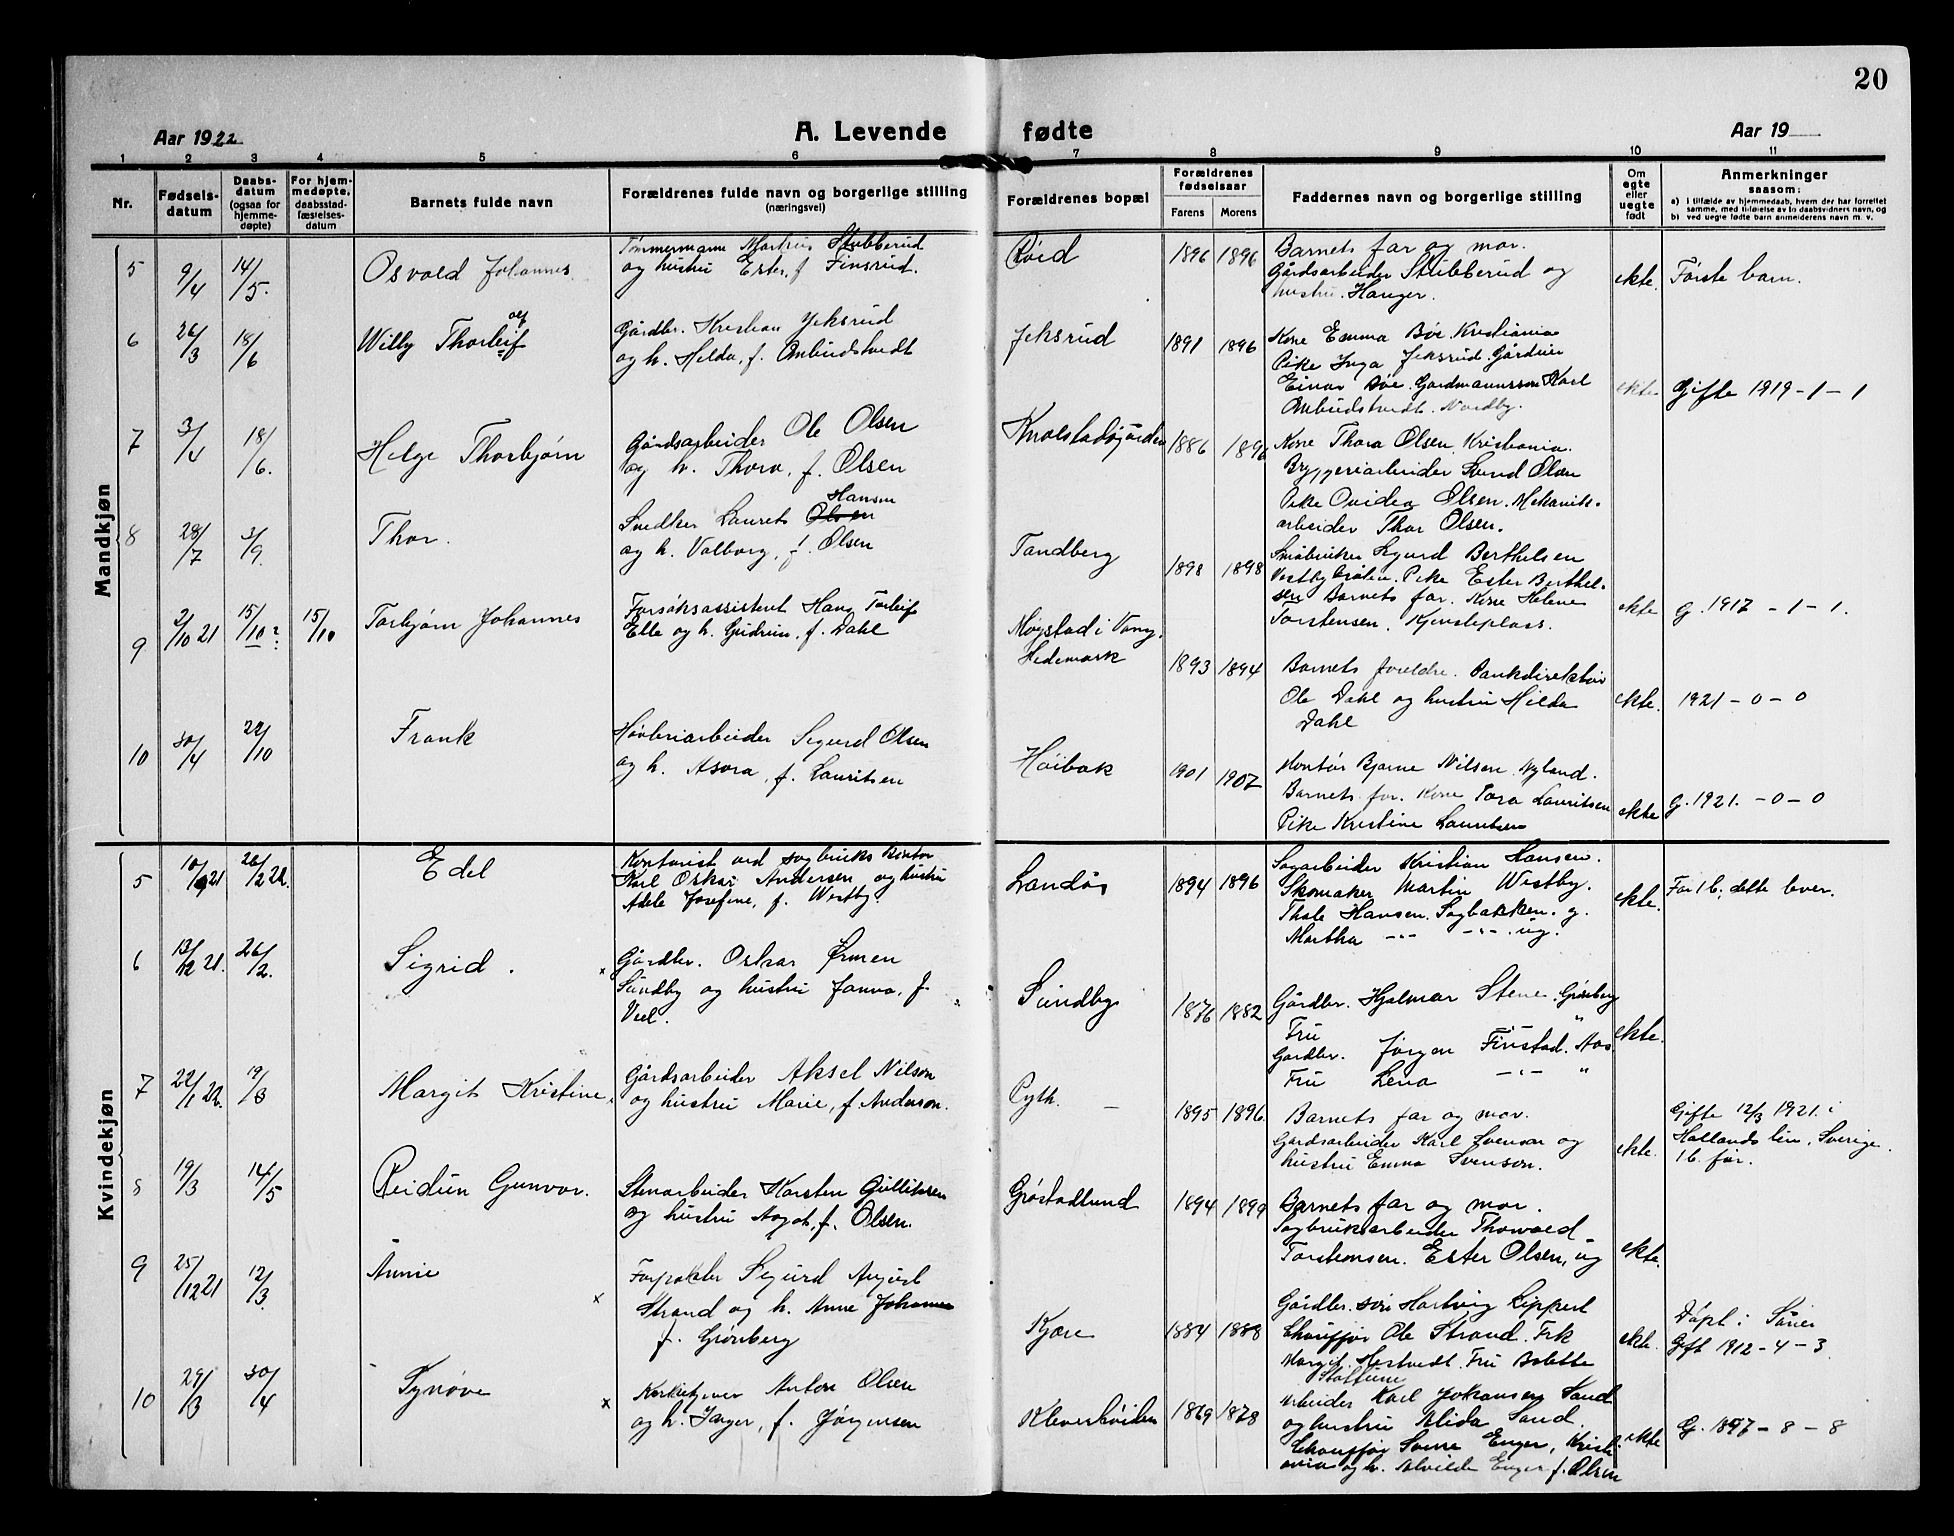 20
Aar 1922
A. Levende
fødte
Aar 19
1 2 3 4 5 6 7 8 9 10 11
Nr.
Fødsels-
datum
Daabs-
datum
(ogsaa for
hjemme-
døpte)
For hjem-
medøpte,
daabsstad-
fæstelses-
datum
Barnets fulde navn
Forældrenes fulde navn og borgerlige stilling
(næringsvei)
Forældrenes bopæl
Forældrenes
fødselsaar
Farens
Morens
Faddernes navn og borgerlige stilling
Om
egte
eller
uegte
født
Anmerkninger
saasom:
a) i tilfælde av hjemmedaab, hvem der har forrettet
samme, med tilføielse av to daabsvidners navn, og
b) ved uegte fødte barn anmelderens navn m. v.
Mandkjøn
5 9/4 14/5. Osvald Johannes
Tømmermann Markus Stubberud
og hustru Ester, f. Finsrud.
1896 1896
Barnets far og mor.
Gårdsarbeider Stubberud og
hustru. Hauger.
ekte. Første barn.
6 26/3 18/6 Willy Thorleif
Gårdbr. Kristian Jeksrud
og h. Hilda, f. Anbudstvedt
Jeksrud 1891 1896
Kone Emma Bøe Kristiania
Pike Inga Jeksrud. Gårdeier
Einar Bøe. Gardmannssøn Karl
Anbudstvedt. Nordby.
ekte Gifte 1919 - 1 - 1
7 3/4 18/6. Helge Thorbjørn
Gårdsarbeider Ole Olsen
og h. Thora, f. Olsen
1886 1896
Kone Thora Olsen. Kristiania.
Bryggeriarbeider Svend Olsen
Pike Ovidea Olsen. Mekanisk-
arbeider Thor Olsen.
8 28/7 3/9. Thor.
Snedker Laurets Olsen Hansen
og h. Valborg, f. Olsen
Tandberg 1898 1898
Småbruker Sigurd Berthelsen
Vestby. Pike Ester Berthel-
sen Barnets far. Kone Helene
Torstensen.
ekte G. 1917 - 1 - 1.
9 2/10 21 15/10? 15/10 Torbjørn Johannes
Forsøksassistent Hans Torleif
Elle og h. Gudrun, f. Dahl
Møystad i Vang.
Hedemark 1893 1894
Barnets foreldre. Bankdirektør
Ole Dahl og hustru Hilda
Dahl
ekte. 1921 - 0 - 0
10 30/4 22/10 Frank
Høvleriarbeider Sigurd Olsen
og h. Asora, f. Lauritsen
Høibak 1901 1902
Montør Bjarne Nilsen. Nyland.
Barnets far. Kone Tora Lauritsen
Pike Kristine Lauritsen
ekte G. 1921. - 0 - 0
Kvindekjøn
5 10/9 21 26/2 22. Edel
Kontorist ved sagbruks kontor
Karl Oskar Andersen og hustru
Adele Josefine, f. Westby.
Landås 1894 1896
Sagarbeider Kristian Hansen.
Skomaker Martin Westby.
Thale Hansen. Sagbakken. g.
Martha -"- -"- ug.
ekte. Før 1 b. dette lever.
6 13/12 21. 26/2. Sigrid.
Gårdbr. Oskar Ormen
Sundby og hustru Janna, f.
Veel.
Sundby 1876 1882
Gårdbr. Hjalmar Stene. Grønberg
Fru "
Gårdbr. Jørgen Finstad. Aas
Fru Lena -"- "
ekte.
7 22/1 22. 19/3 Margit Kristine.
Gårdsarbeider Aksel Nilson
og hustru Marie, f. Anderson.
1895 1896.
Barnets far og mor.
Gårdsarbeider Karl Svenson og
hustru Emma Svenson.
ekte. Gifte 12/3 1921. i
Hallands len, Sverige.
1 b. før.
8 19/3 14/5 Reidun Gunvor.
Stenarbeider Karsten Gulliksen
og hustru Aagot, f. Olsen.
Grøstadlund 1894 1899
Barnets far og mor.
Sagbruksarbeider Thorvald
Torstensen. Ester Olsen, ug
ekte.
9 25/12 21 12/3. Annie
Forpakter Sigurd August
Strand og h. Anne Johanne
f. Grønberg
Kjære 1884 1888
Gårdbr. søn Hartvig Lippert
Chauffør Ole Strand. Frk
Margit Hestvedt. Fru Bolette
ekte. Døpt i Såner
Gift 1912 - 4 - 3
10 29/3 30/4 Synøve
Anton Olsen
og h. Inger, f. Jørgensen
Kleverbøiden 1869 1878
Arbeider Karl Johansen Sand
og hustru Alida Sand.
Chauffør Sverre Enger, Kristi-
ania og h. Alvilde Enger f. Olsen
ekte G. 1897 - 8 - 8